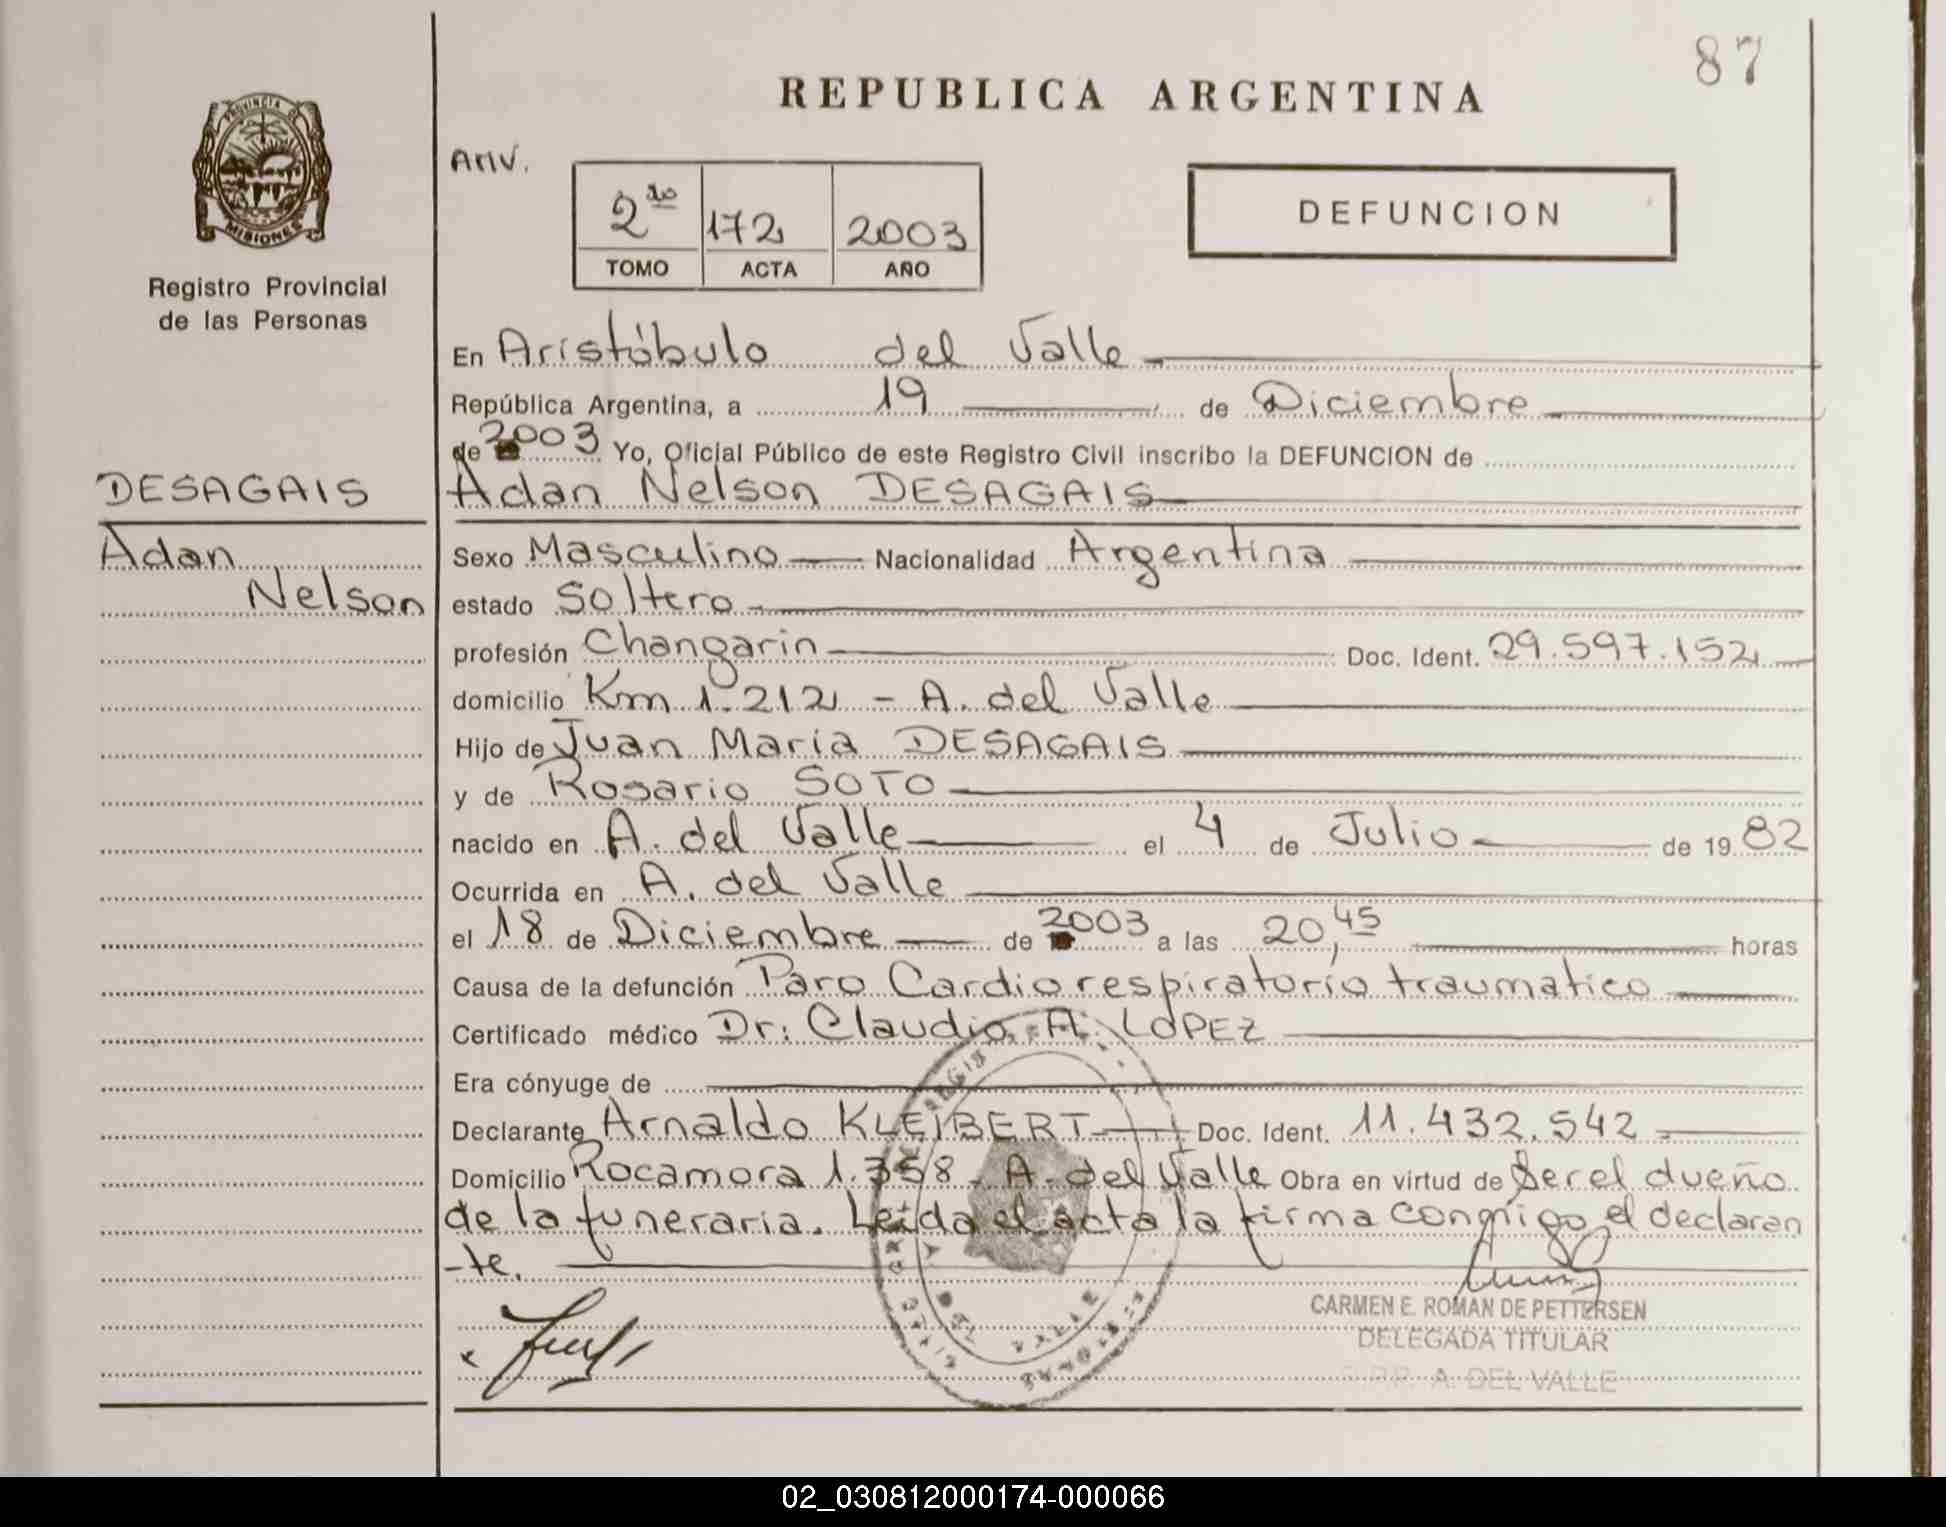 87
REPUBLICA ARGENTINA
PROVINCIA DE
MISIONES
Registro Provincial
de las Personas
ANV.
2do 172 2003
TOMO ACTA AÑO
DEFUNCION
En Aristóbulo del Valle
República Argentina, a 19 de Diciembre
de 2003 Yo, Oficial Público de este Registro Civil inscribo la DEFUNCION de
DESAGAIS
Adan Nelson DESAGAIS
Adan
Sexo Masculino Nacionalidad Argentina
Nelson
estado Soltero
profesión Changarin Doc. Ident. 29.597.152
domicilio Km 1.212 - A. del Valle
Hijo de Juan Maria DESAGAIS
y de Rosario SOTO
nacido en A. del Valle el 4 de Julio de 1982
Ocurrida en A. del Valle
el 18 de Diciembre de 2003 a las 20,45 horas
Causa de la defunción Paro Cardiorespiratorio traumatico
Certificado médico Dr: Claudio A. LOPEZ
Era cónyuge de
Declarante Arnaldo KLEIBERT Doc. Ident. 11.432.542
Domicilio Rocamora 1.358 - A. del Valle Obra en virtud de Ser el dueño
de la funeraria. Leida el acta la firma conmigo el declaran
-te.
CARMEN E. ROMAN DE PETTERSEN
DELEGADA TITULAR
A. DEL VALLE
02_030812000174-000066